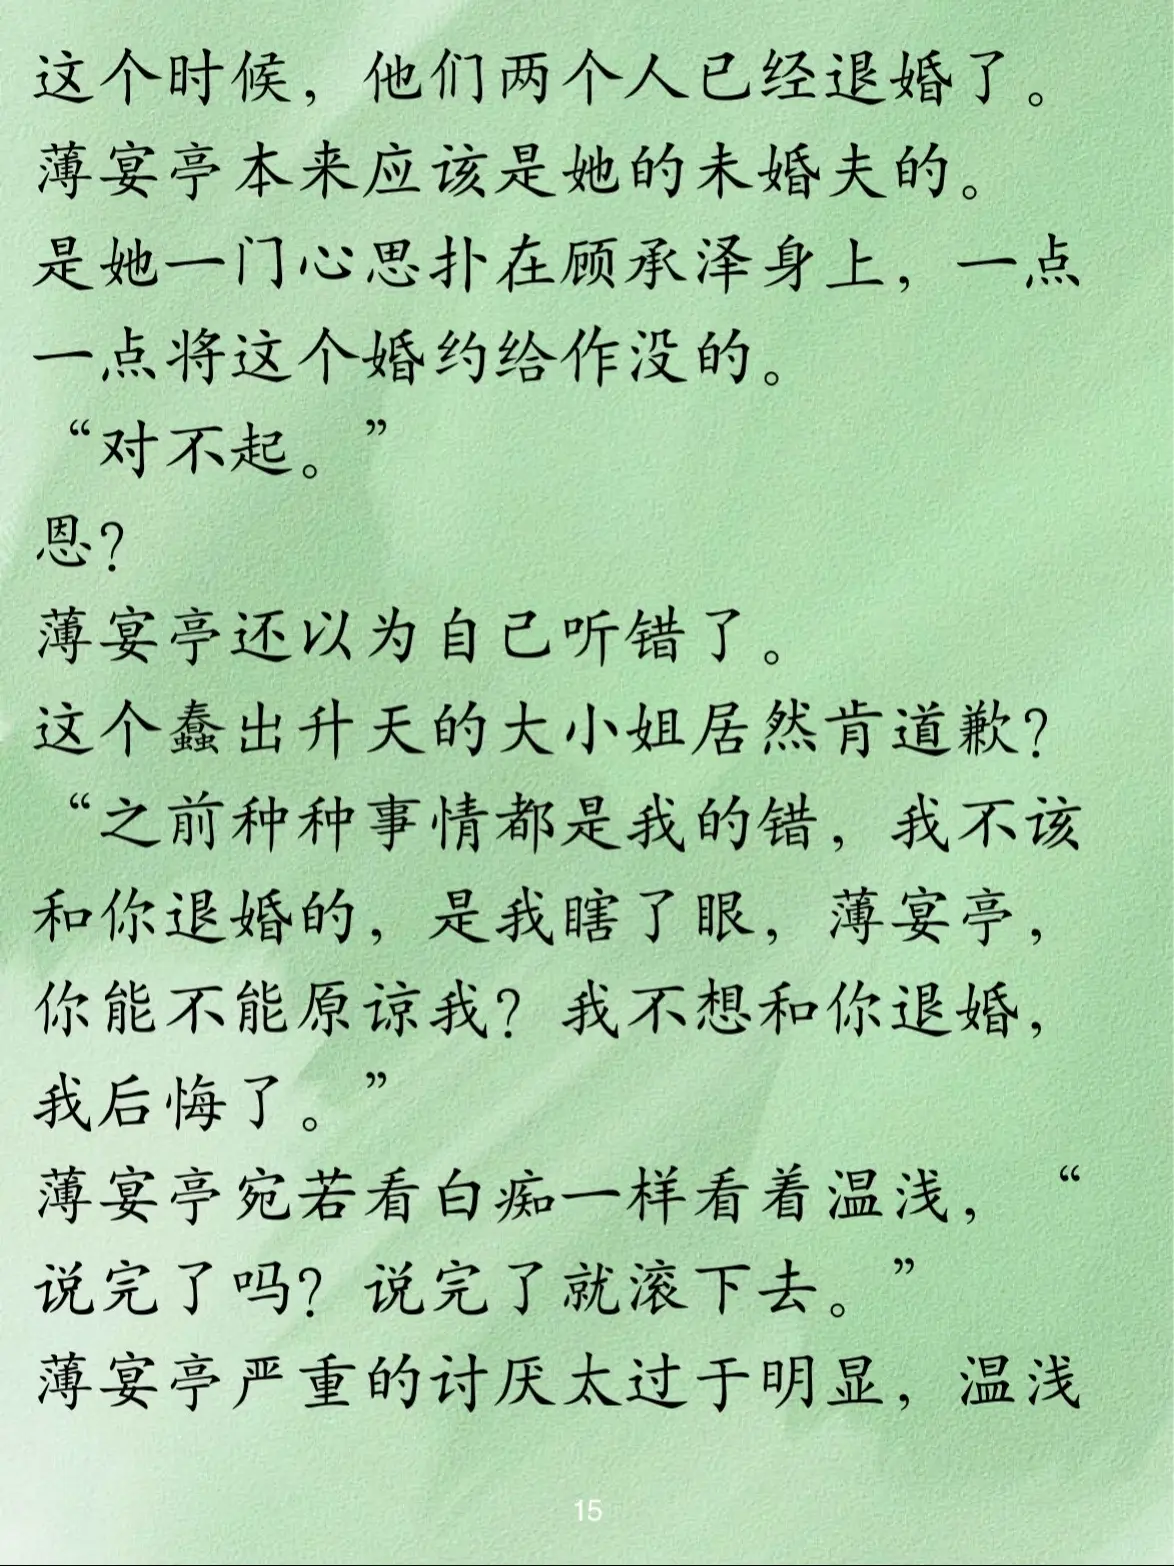 这个时候，他们两个人已经退婚了。
薄宴亭本来应该是她的未婚夫的。
是她一门心思扑在顾承泽身上，一点
一点将这个婚约给作没的。
“对不起。”
恩？
薄宴亭还以为自己听错了。
这个蠢出升天的大小姐居然肯道歉？
“之前种种事情都是我的错，我不该
和你退婚的，是我瞎了眼，薄宴亭，
你能不能原谅我？我不想和你退婚，
我后悔了。”
薄宴亭宛若看白痴一样看着温浅，“
说完了吗？说完了就滚下去。”
薄宴亭严重的讨厌太过于明显，温浅
15